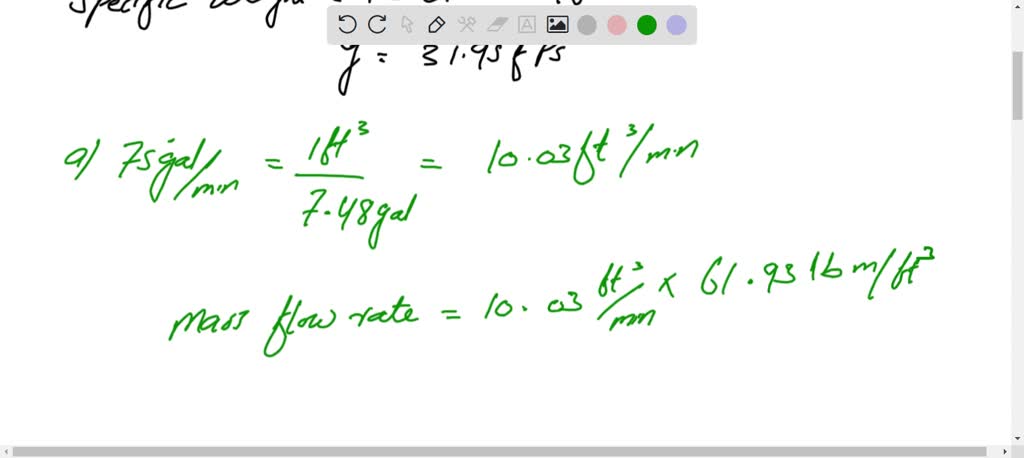 Specific weight
g = 31.95 fps
a) 75 gal/min = 1ft³/7.48gal = 10.03 ft³/min
mass flow rate = 10.03 ft³/min x 61.93 lbm/ft³